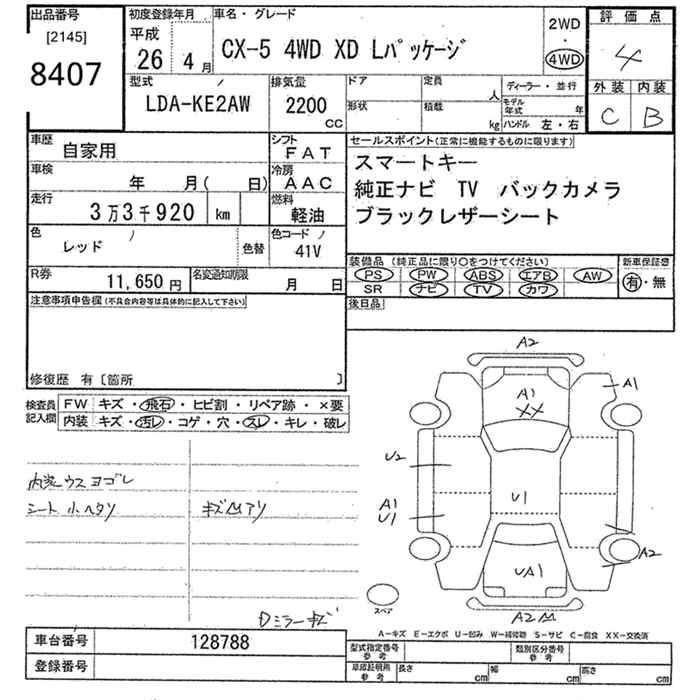 出品番号 初度登録年月 車名・グレード 2WD 評価点
[2145] 平成 ・
8407 26 年 4 月 CX-5 4WD XD Lパッケージ 4WD 4
型式 排気量 ドア 定員 人 ディーラー・並行 外装 内装
LDA-KE2AW 2200 CC 形状 積載 kg モデル年式 年 C B
ハンドル 左・右
車歴 自家用 シフト FAT セールスポイント(正常に機能するものに限ります)
車検 年 月( 日) 冷房 AAC スマートキー
走行 3万3千920 km 燃料 軽油 純正ナビ TV バックカメラ
ブラックレザーシート
色 レッド 色替 色コード 41V
装備品 (純正品に限り○をつけてください) 新車保証書
R券 11,650円 名変通知期限 月 日 PS PW ABS エアB AW 有・無
SR ナビ TV カワ
注意事項申告欄(不具合内容等は具体的に記入して下さい) 後日品
修復歴 有〔箇所 〕
検査員記入欄 FW キズ・飛石・ヒビ割・リペア跡・×要
内装 キズ・汚レ・コゲ・穴・スレ・キレ・破レ
A2
A1
A1
XX
U2
内装ウスヨゴレ
シート小ヘタリ キズMアリ
A1
U1
U1
A2
UA1
スペア
A2M
Dミラーキズ
A-キズ E-エクボ U-凹み W-補修跡 S-サビ C-腐食 XX-交換済
車台番号 128788
登録番号
型式指定番号 参考 類別区分番号 参考
車庫証明用 参考 長さ cm 幅 cm 高さ cm